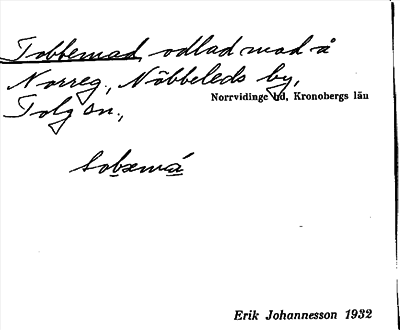 Tobbemad, odlad mad å
Norreg., Nöbbeleds by,
Norrvidinge hd, Kronobergs län
Tolg sn.,
Erik Johannesson 1932